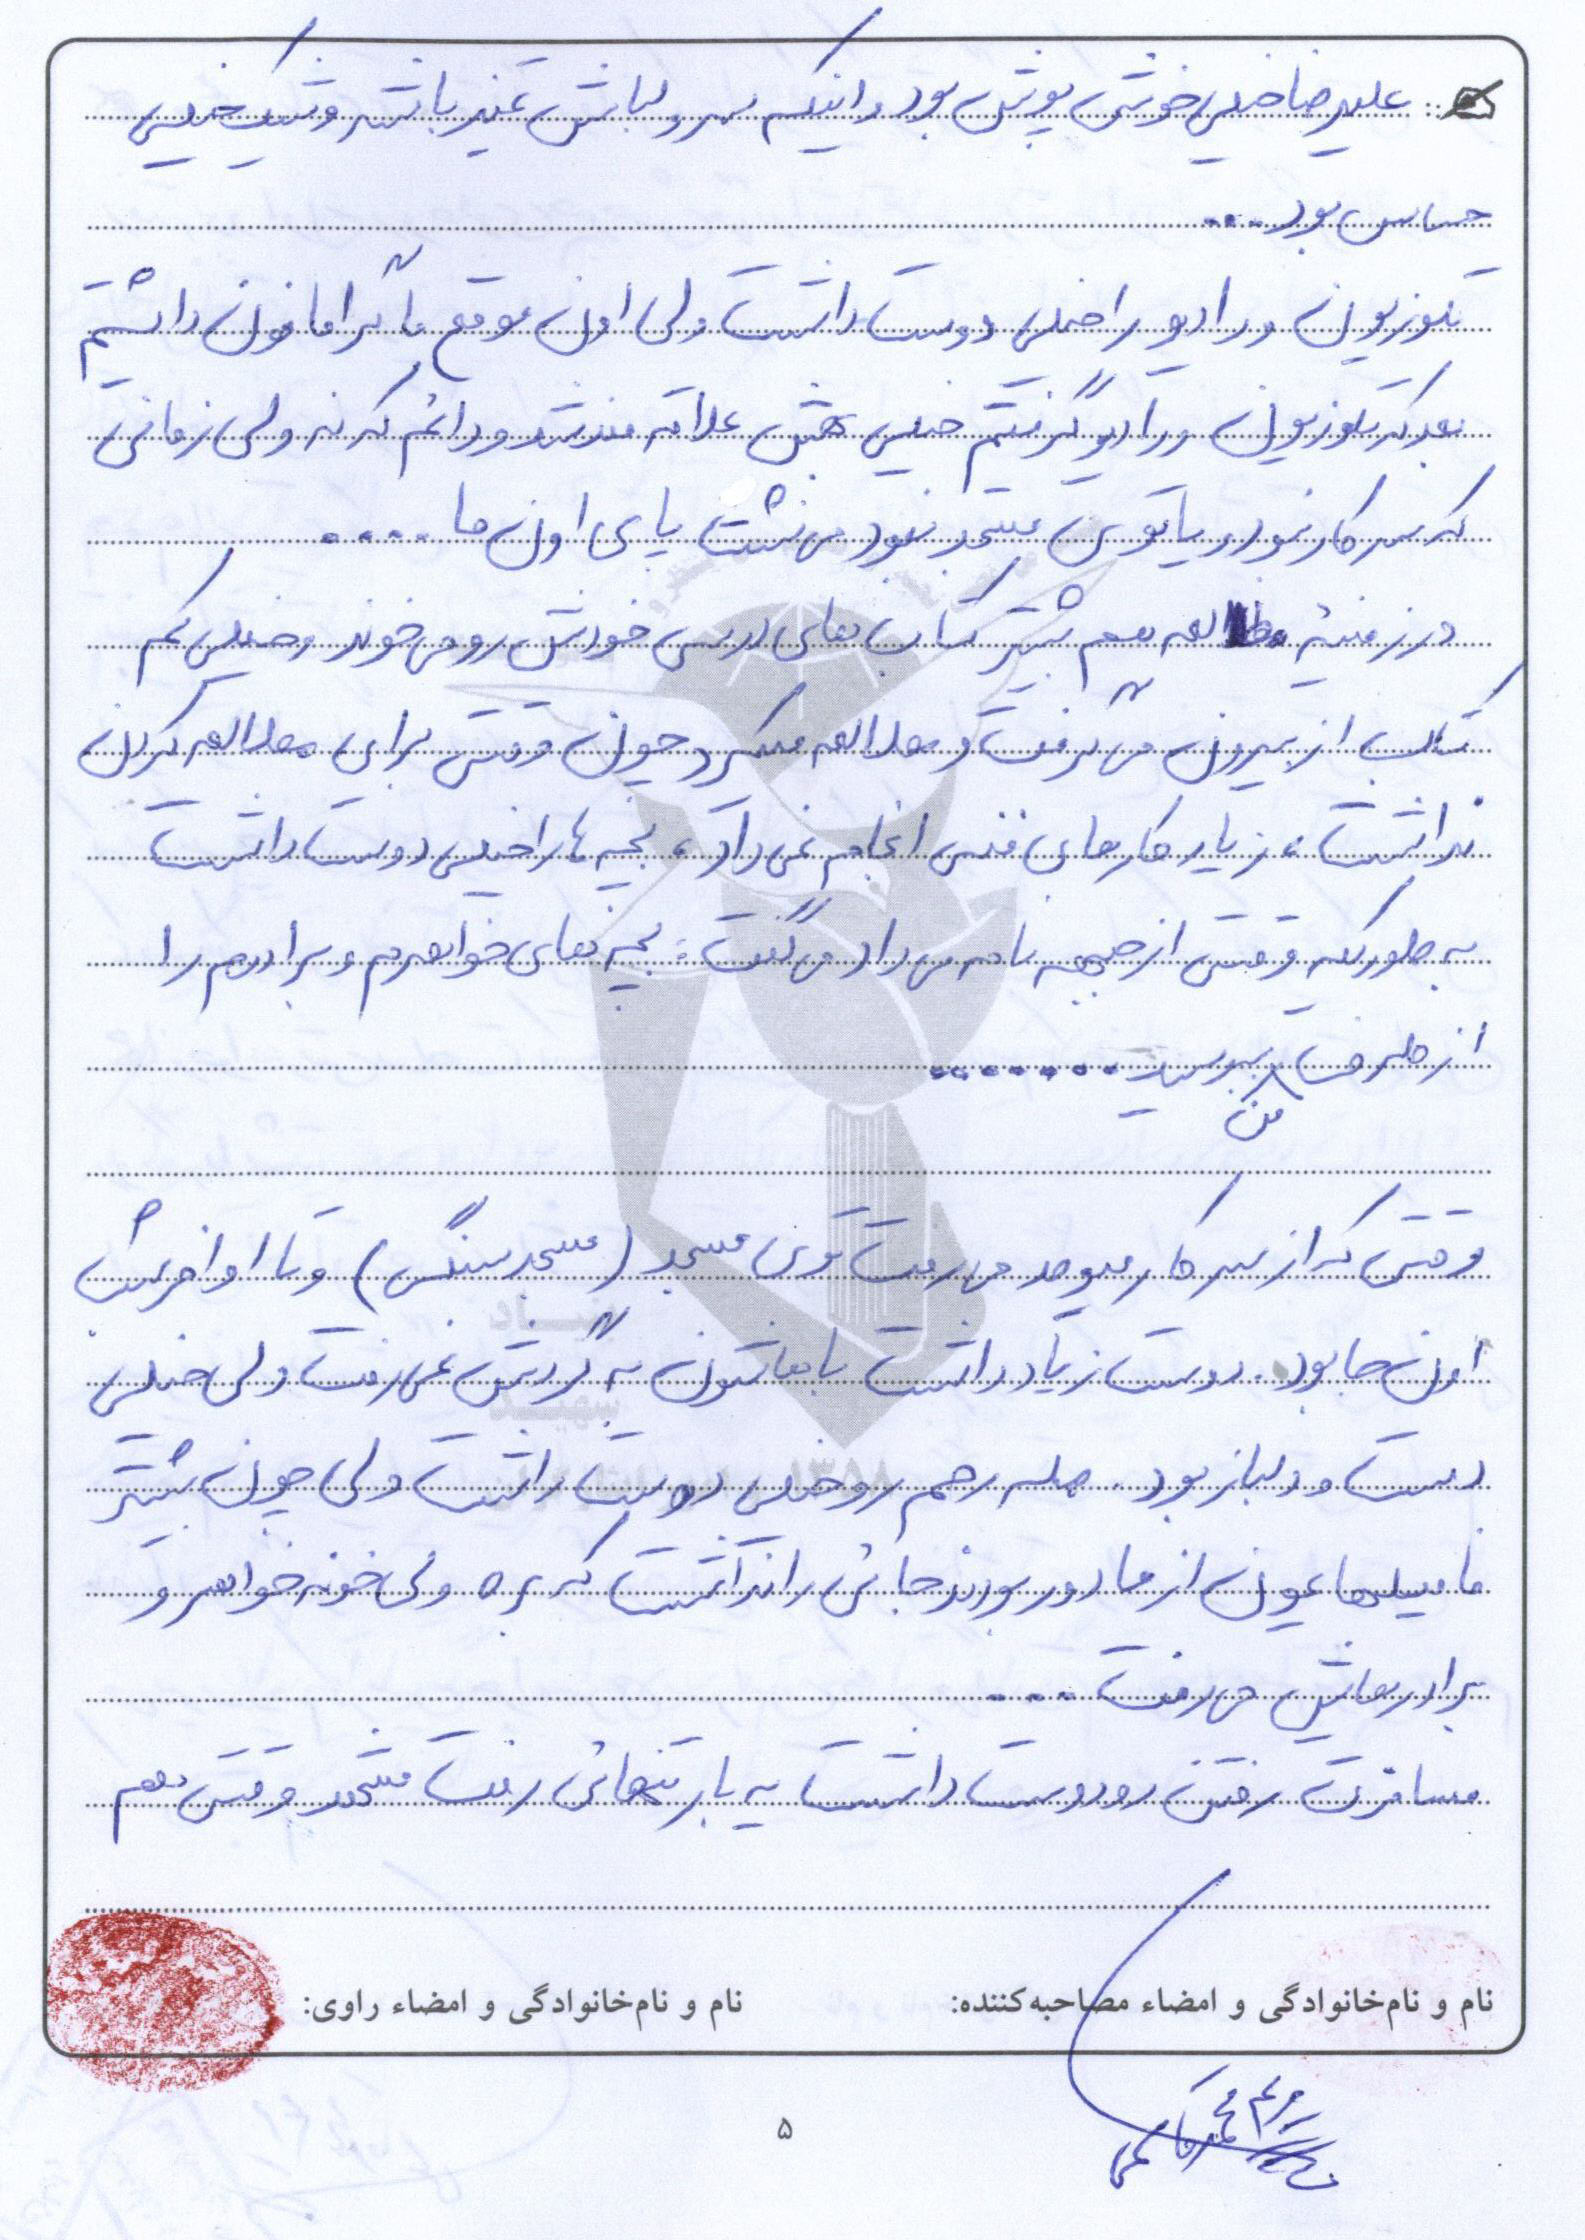 علیرضا خیلی خوش پوش بود و اینکه سرو لباش تمیز باشه و شیک خیلی
حساس بود ...
تلوزیون و رادیو را خیلی دوست داشت ولی اون موقع ما گرامافون داشتیم
بعد که تلوزیون و رادیو گرفتیم خیلی بهش علاقه مند شد و دائم که نه ولی زمانی
که سر کار نبود و یا توی مسجد نبود می نشست پای اون ها ....
در زمینه مطالعه هم بیشتر کتاب های درسی خودش رو می خوند و خیلی کم
کتاب از بیرون می گرفت و مطالعه میکرد چون وقتی برای مطالعه کردن
نداشت، زیاد کارهای فنی انجام نمی داد، بچه ها را خیلی دوست داشت
به طوریکه وقتی از جبهه نامه می داد می گفت: بچه های خواهرم و برادرم را
از طرف من ببوسید .......
وقتی که از سر کار میومد می رفت توی مسجد (مسجد سنگی) و تا اواخر شب
اون جا بود. دوست زیاد داشت باهاشون به گردش نمی رفت ولی خیلی
دست و دلباز بود. صله رحم رو خیلی دوست داشت ولی چون بیشتر
فامیلهامون از ما دور بودند جائی را نداشت که بره ولی خونه خواهر و
برادرهاش می رفت ...
مسافرت رفتن رو دوست داشت یه بار تنهائی رفت مشهد وقتی هم
نام و نام‌خانوادگی و امضاء مصاحبه‌کننده:
نام و نام‌خانوادگی و امضاء راوی:
۵